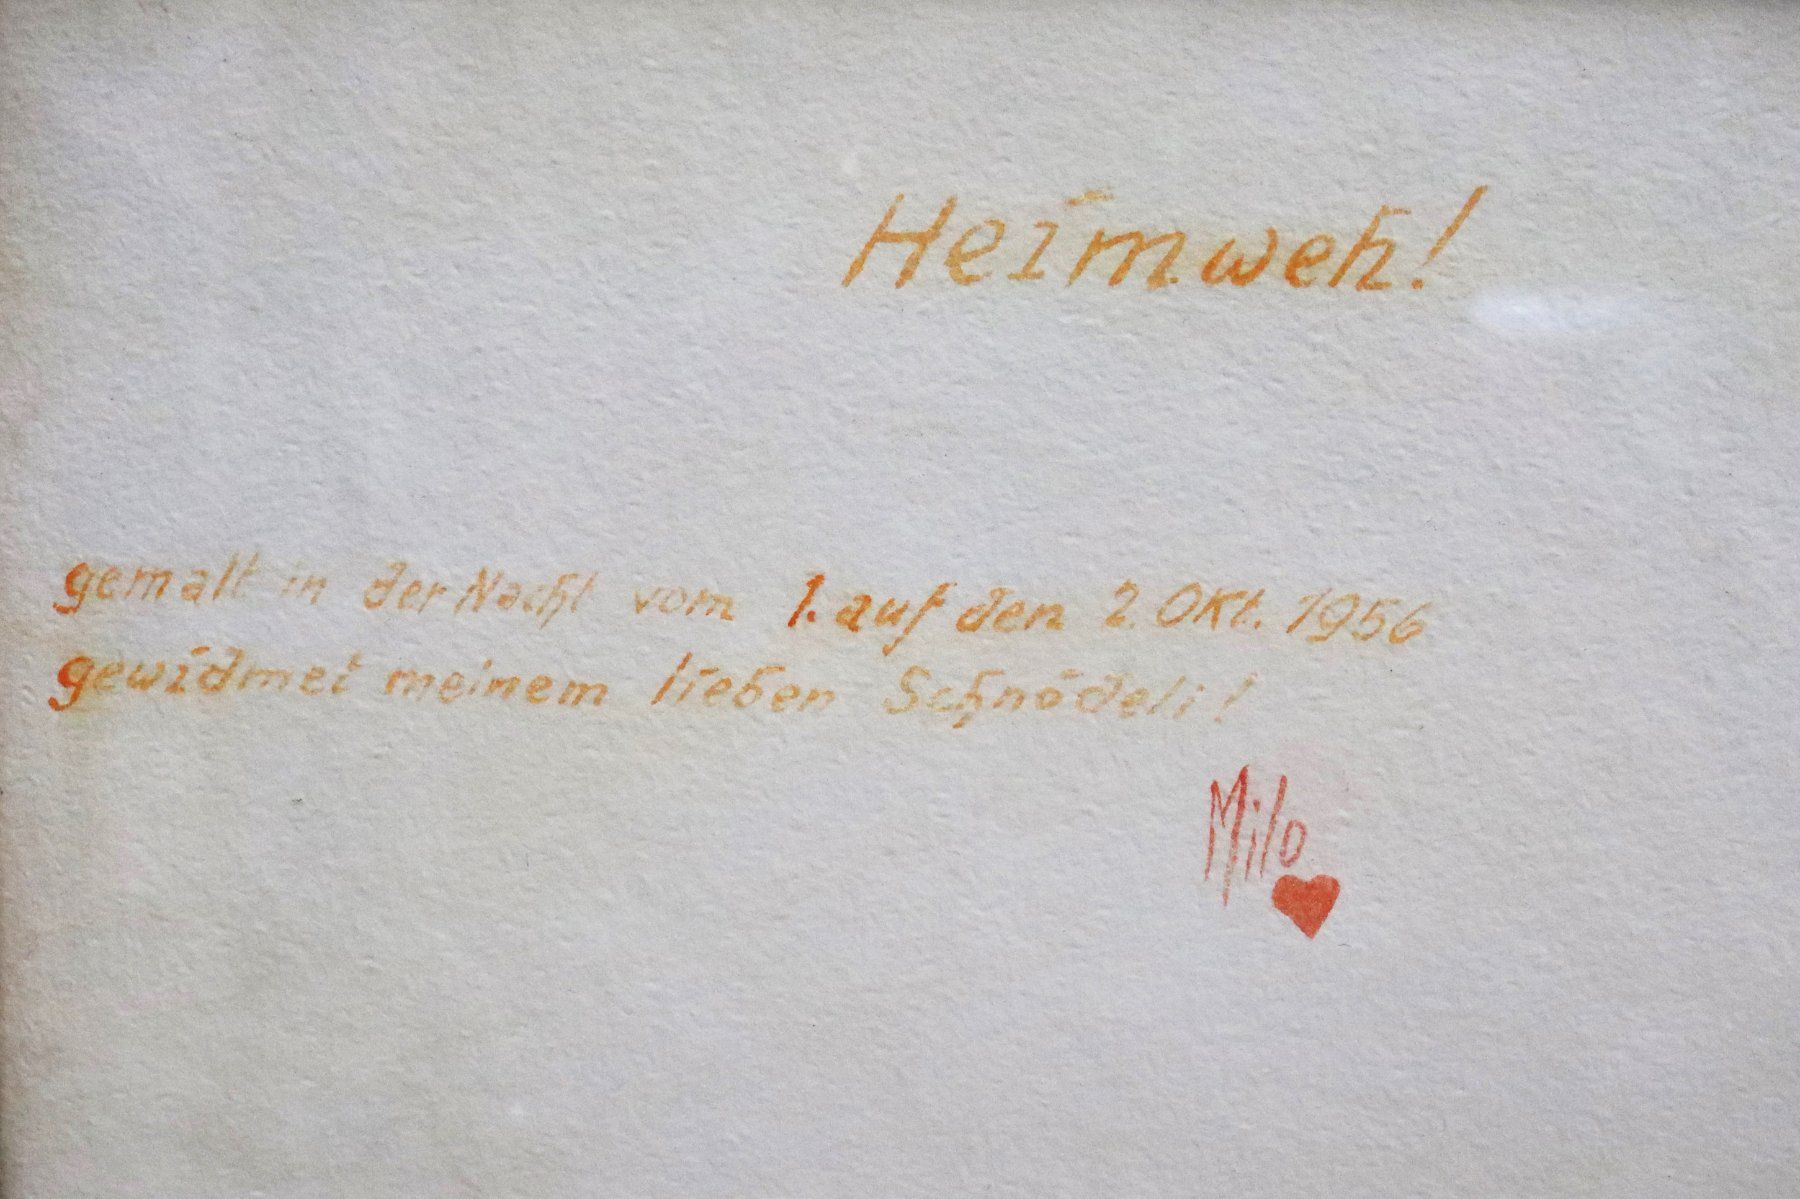 Heimweh!
gemalt in der Nacht vom 1. auf den 2. Okt. 1956
gewidmet meinem lieben Schnödeli!
Milo